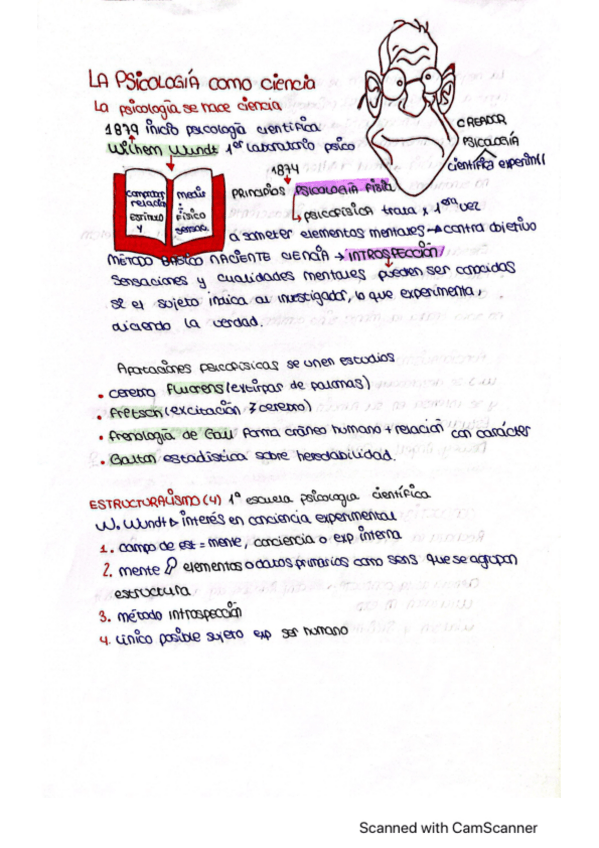 LA PSICOLOGÍA como ciencia
La psicología se hace ciencia
1879 inicio psicología científica
Wilhem Wundt 1er laboratorio psico
CREADOR
PSICOLOGÍA
científica experim
1874
PRINCIPIOS PSICOLOGÍA Fisio
comprobar relación estímulo y
medir físico sensac
psicofísica trata x 1era vez
a someter elementos mentales → control objetivo
MÉTODO BÁSICO NACIENTE CIENCIA → INTROSPECCIÓN
Sensaciones y cualidades mentales pueden ser conocidas
si el sujeto indica al investigador, lo que experimenta,
diciendo la verdad.
Aportaciones psicofísicas se unen estudios
• cerebro Flourens (extirpar de palomas)
• Fritsch (excitación cerebro)
• Frenología de Gall forma cráneo humano + relación con carácter
• Galton estadística sobre heredabilidad.
ESTRUCTURALISMO (4) 1ª escuela psicología científica
W. Wundt interés en conciencia experimental
1. campo de est = mente, conciencia o exp interna
2. mente elementos o datos primarios como sens que se agrupan
estructura
3. método introspección
4. único posible sujeto exp ser humano
Scanned with CamScanner